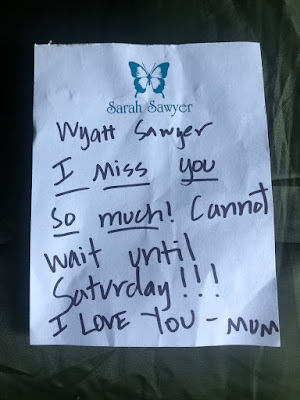 Sarah Sawyer
Wyatt Sawyer
I miss you
so much! Cannot
wait until
Saturday!!!
I LOVE YOU - MUM